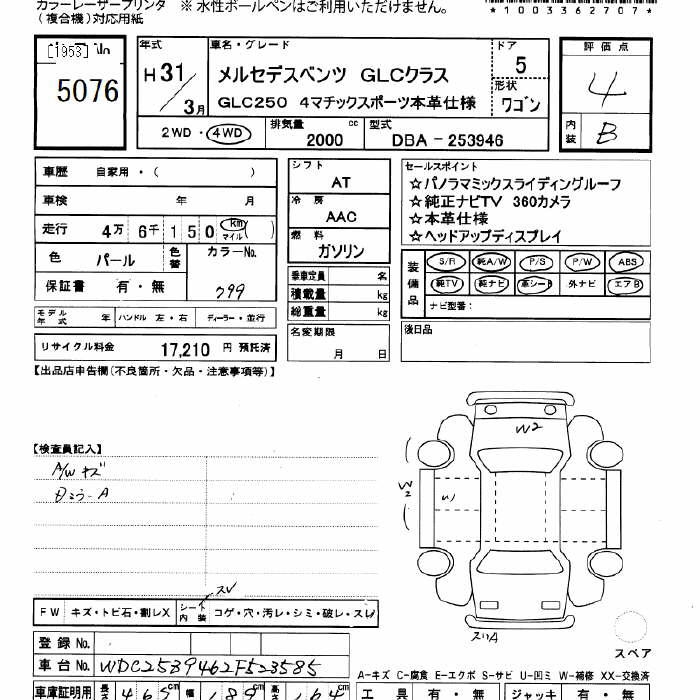 カラーレーザープリンタ ※ 水性ボールペンはご利用いただけません。
(複合機)対応用紙
*1003362707*
[1953]
5076
年式 H31/3月
車名・グレード メルセデスベンツ GLCクラス
GLC250 4マチックスポーツ本革仕様
ドア 5
形状 ワゴン
評価点 4
内装 B
2WD・4WD 排気量 2000 cc 型式 DBA-253946
車歴 自家用・( )
車検 年 月
走行 4万 6千 1 5 0 km マイル ( )
色 パール 色番 カラーNo. 799
保証書 有・無
モデル年式 年 ハンドル 左・右 ディーラー・並行
リサイクル料金 17,210 円 預託済
シフト AT
冷房 AAC
燃料 ガソリン
乗車定員 名
積載量 kg
総重量 kg
名変期限 月 日
セールスポイント
☆パノラマミックスライディングルーフ
☆純正ナビTV 360カメラ
☆本革仕様
☆ヘッドアップディスプレイ
装備品 S/R 純A/W P/S P/W ABS
純TV 純ナビ 革シート 外ナビ エアB
ナビ型番:
後日品
【出品店申告欄(不良箇所・欠品・注意事項等)】
【検査員記入】
A/W キズ
W2
W2
スリA
スペア
スレ
FW キズ・トビ石・割レX シート内装 コゲ・穴・汚レ・シミ・破レ・スレ
登録No.
車台No. WDC2539462F523585
A-キズ C-腐食 E-エクボ S-サビ U-凹ミ W-補修 XX-交換済
車庫証明用 長さ 465cm 幅 189cm 高さ 164cm
工具 有・無 ジャッキ 有・無